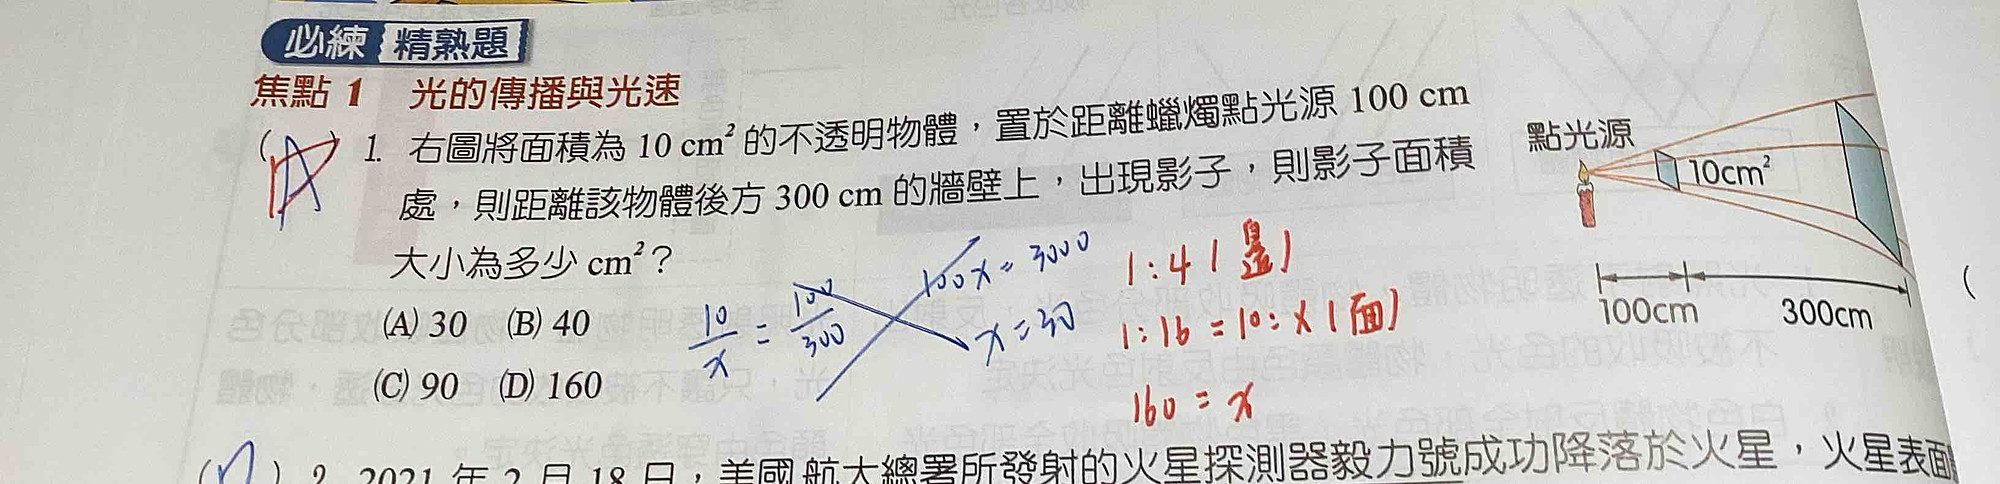 必練 精熟題
焦點 1 光的傳播與光速
(A) 1. 右圖將面積為 10 cm² 的不透明物體，置於距離蠟燭點光源 100 cm
處，則距離該物體後方 300 cm 的牆壁上，出現影子，則影子面積
大小為多少 cm²？
(A) 30 (B) 40
(C) 90 (D) 160
10/x = 100/300
100x = 3000
x = 30
1:4（邊）
1:16 = 10:x（面）
160 = x
點光源
10cm²
100cm 300cm
2. 2021 年 2 月 18 日，美國航太總署所發射的火星探測器毅力號成功降落於火星，火星表面